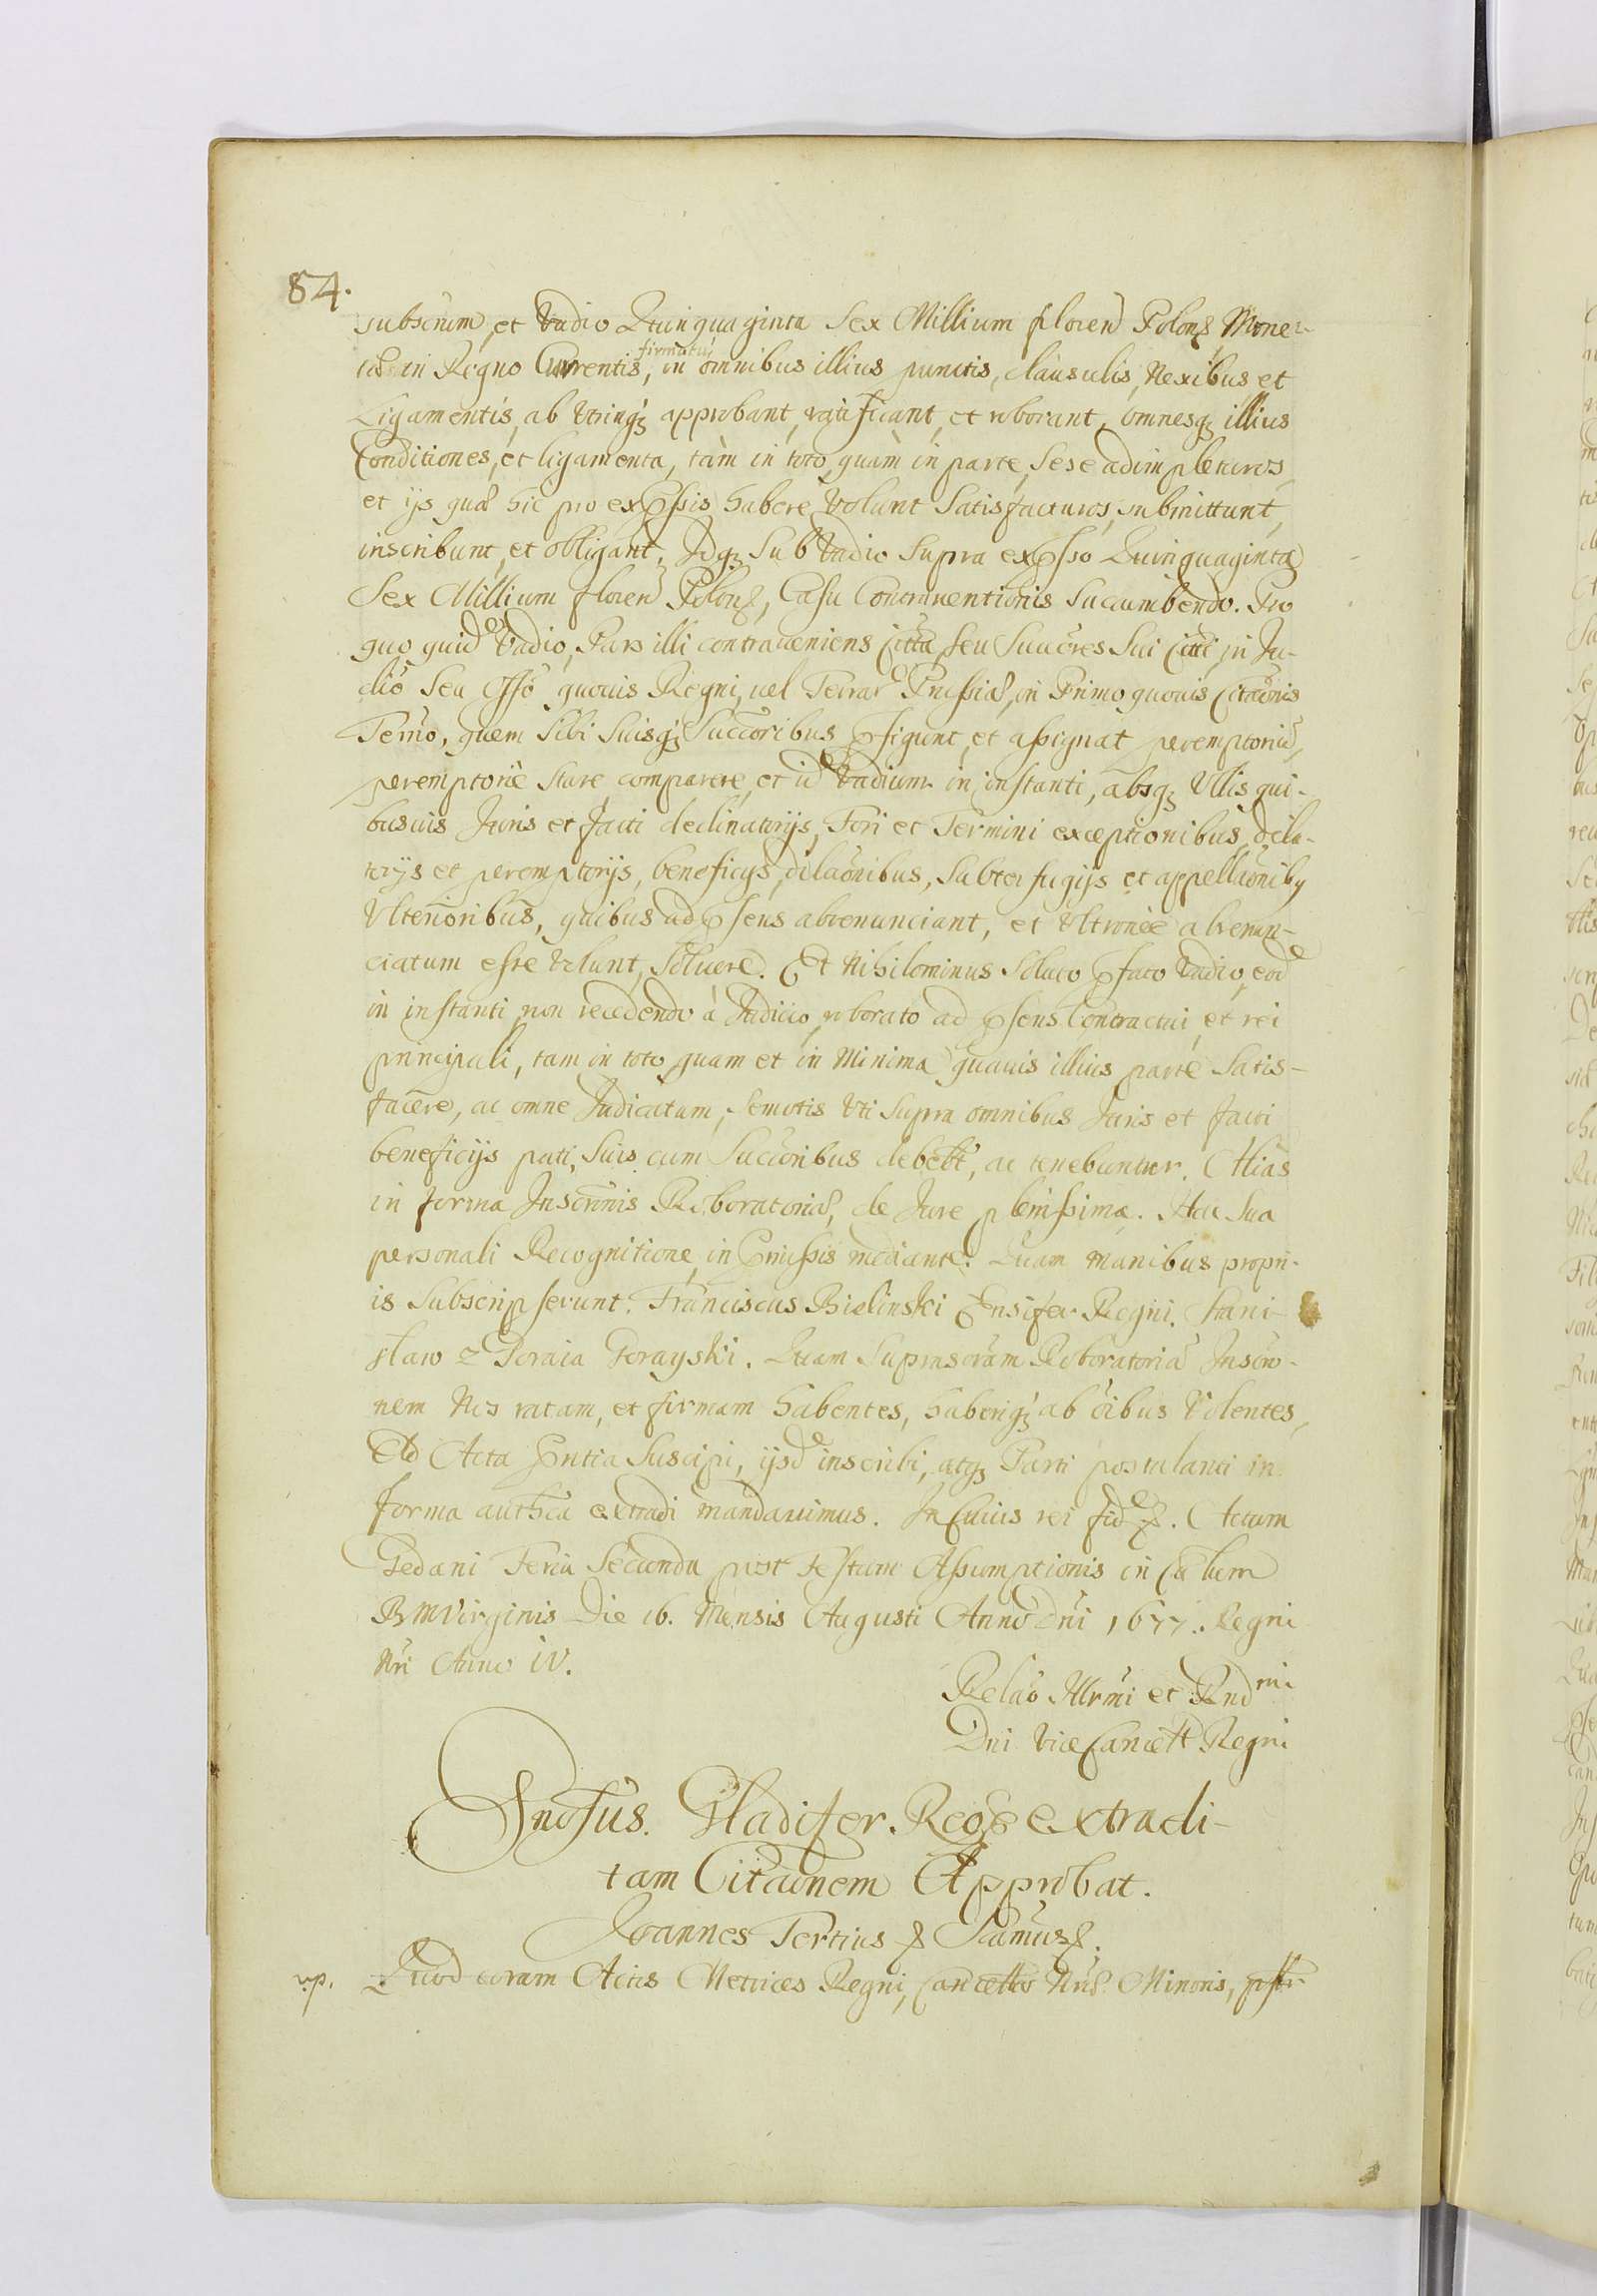 84.
subscrum, et Vadio Quinquaginta Sex Millium floren Polon Mone-
in Regno Currentis, firmatu in omnibus illius punctis, clausulis, Nexibus et
Ligamentis, ab utrinq approbant, ratificant, et roborant, omnesq illius
Conditiones, et ligamenta, tàm in toto, quàm in parte, sese adimpleturos
et ijs quas hic pro expssis habere Volunt Satisfacturos, submittunt,
inscribunt, et obligant, Idq Sub Vadio Supra expsso Quinquaginta
Sex Millium floren Polon, Casu Contrauentionis Sucumbendo. Pro
quo quid Vadio, Pars illi contraueniens Citta, seu Succres Sui Citti, in Ju-
dio Seu Offo quouis Regni, uel Terrar Prussia, in Primo quouis Citaonis
Termo, quem Sibi Suisq Succoribus pfigunt, et assignat peremptoriu,
peremptoriè stare comparere, et id Vadium in instanti, absq Vllis qui-
busuis Juris et facti declinatorijs, Fori et Termini exceptionibus, dila-
torijs et peremptorijs, beneficijs, dilaonibus, Subterfugijs et appellaonibq
Vlterioribus, quibus ad psens abrenunciant, et Vltroneè abrenun-
ciatum esse Volunt, Soluere. Et Nihilominus Soluto pfato Vadio, eod
in instanti, non recedendo à Judicio, roborato ad psens Contractui, et rei
principali, tam in toto, quam et in Minima quauis illius parte Satis-
facere, ac omne Judicatum, Semotis Vti Supra omnibus Juris et facti
beneficijs pati, Suis cum Succoribus debebt, ac tenebuntur. Alias
in forma Inscrionis Roboratoria, de Jure plenissima. Hac Sua
personali Recognitione, in Pmissis mediante. Quam manibus propri-
is Subscripserunt. Franciscus Bielinski Ensifer Regni. Stani-
slaw z Poraia Gorayski. Quam Suprascram Roboratoria Inscrio-
nem Nos ratam, et firmam habentes, haberiq ab oibus Volentes,
Ad Acta Pntia Suscipi, ijsd inscribi, atq Parti postulanti in
forma authca extradi mandauimus. In Cuius rei fid. Actum
Gedani Feria Secunda post Festum Assumptionis in Caelum
BMVirginis Die 16. Mensis Augusti Anno Dni 1677. Regni
Nri Anno IV.
Relao Illrmi et Rndmi
Dni ViceCancell Regni
Gnosus Gladifer Reg extradi-
tam Citaonem Approbat.
Joannes Tertius
Quod coram Actis Metrices Regni, Minoris,